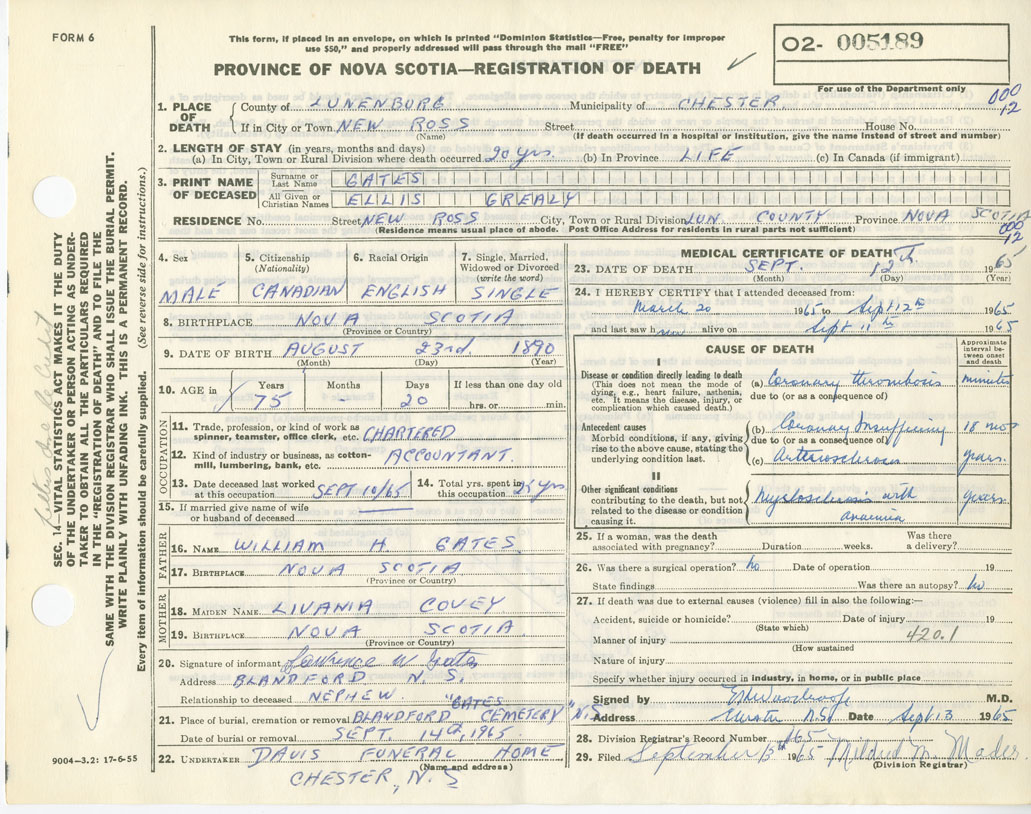 FORM 6
This form, if placed in an envelope, on which is printed "Dominion Statistics—Free, penalty for improper
use $50," and properly addressed will pass through the mail "FREE"
O2- 005189
PROVINCE OF NOVA SCOTIA—REGISTRATION OF DEATH
For use of the Department only
000
12
1. PLACE OF DEATH { County of LUNENBURG Municipality of CHESTER
If in City or Town NEW ROSS Street House No.
(Name) (If death occurred in a hospital or institution, give the name instead of street and number)
2. LENGTH OF STAY (in years, months and days)
(a) In City, Town or Rural Division where death occurred 20 yrs. (b) In Province LIFE (c) In Canada (if immigrant)
3. PRINT NAME OF DECEASED { Surname or Last Name GATES
All Given or Christian Names ELLIS GREALY
RESIDENCE No. Street NEW ROSS City, Town or Rural Division LUN. COUNTY Province NOVA SCOTIA
(Residence means usual place of abode. Post Office Address for residents in rural parts not sufficient)
000
12
4. Sex 5. Citizenship (Nationality) 6. Racial Origin 7. Single, Married, Widowed or Divorced (write the word)
MALE CANADIAN ENGLISH SINGLE
8. BIRTHPLACE NOVA SCOTIA
(Province or Country)
9. DATE OF BIRTH AUGUST 23rd. 1890
(Month) (Day) (Year)
10. AGE in Years Months Days If less than one day old
75 - 20 hrs. or min.
OCCUPATION
11. Trade, profession, or kind of work as
spinner, teamster, office clerk, etc. CHARTERED
12. Kind of industry or business, as cotton-
mill, lumbering, bank, etc. ACCOUNTANT.
13. Date deceased last worked at this occupation SEPT 10/65 14. Total yrs. spent in this occupation 25 yrs.
15. If married give name of wife
or husband of deceased
FATHER
16. NAME WILLIAM H. GATES.
17. BIRTHPLACE NOVA SCOTIA
(Province or Country)
MOTHER
18. MAIDEN NAME LIVANIA COVEY
19. BIRTHPLACE NOVA SCOTIA
(Province or Country)
20. Signature of informant Lawrence W Gates
Address BLANDFORD N. S.
Relationship to deceased NEPHEW
21. Place of burial, cremation or removal BLANDFORD "GATES CEMETERY" N.S.
Date of burial or removal SEPT. 14th, 1965.
22. UNDERTAKER DAVIS FUNERAL HOME
(Name and address)
CHESTER, N. S
MEDICAL CERTIFICATE OF DEATH
23. DATE OF DEATH SEPT. 12th 1965
(Month) (Day) (Year)
24. I HEREBY CERTIFY that I attended deceased from:
March 20 1965 to Sept 12th 1965
and last saw h alive on Sept 11th 1965
CAUSE OF DEATH
Approximate interval between onset and death
I
Disease or condition directly leading to death
(This does not mean the mode of
dying, e.g., heart failure, asthenia,
etc. It means the disease, injury, or
complication which caused death.)
(a) Coronary thrombosis minutes
due to (or as a consequence of)
Antecedent causes
Morbid conditions, if any, giving
rise to the above cause, stating the
underlying condition last.
(b) Coronary Insufficiency 18 mos
due to (or as a consequence of)
(c) Arteriosclerosis years.
II
Other significant conditions
contributing to the death, but not
related to the disease or condition
causing it.
Myelosclerosis with anaemia years.
25. If a woman, was the death
associated with pregnancy? Duration weeks. Was there a delivery?
26. Was there a surgical operation? no Date of operation 19
State findings Was there an autopsy? no
27. If death was due to external causes (violence) fill in also the following:—
Accident, suicide or homicide? Date of injury 19
(State which)
Manner of injury 420.1
(How sustained
Nature of injury
Specify whether injury occurred in industry, in home, or in public place
Signed by M.D.
Address Chester N.S. Date Sept 13 1965
28. Division Registrar's Record Number 165
29. Filed September 15th 1965 Mildred M. Mader
(Division Registrar)
SEC. 14—VITAL STATISTICS ACT MAKES IT THE DUTY
OF THE UNDERTAKER OR PERSON ACTING AS UNDER-
TAKER TO OBTAIN ALL THE PARTICULARS REQUIRED
IN THE "REGISTRATION OF DEATH" AND TO FILE THE
SAME WITH THE DIVISION REGISTRAR WHO SHALL ISSUE THE BURIAL PERMIT.
WRITE PLAINLY WITH UNFADING INK. THIS IS A PERMANENT RECORD.
Every item of information should be carefully supplied. (See reverse side for instructions.)
9004—3.2: 17-6-55